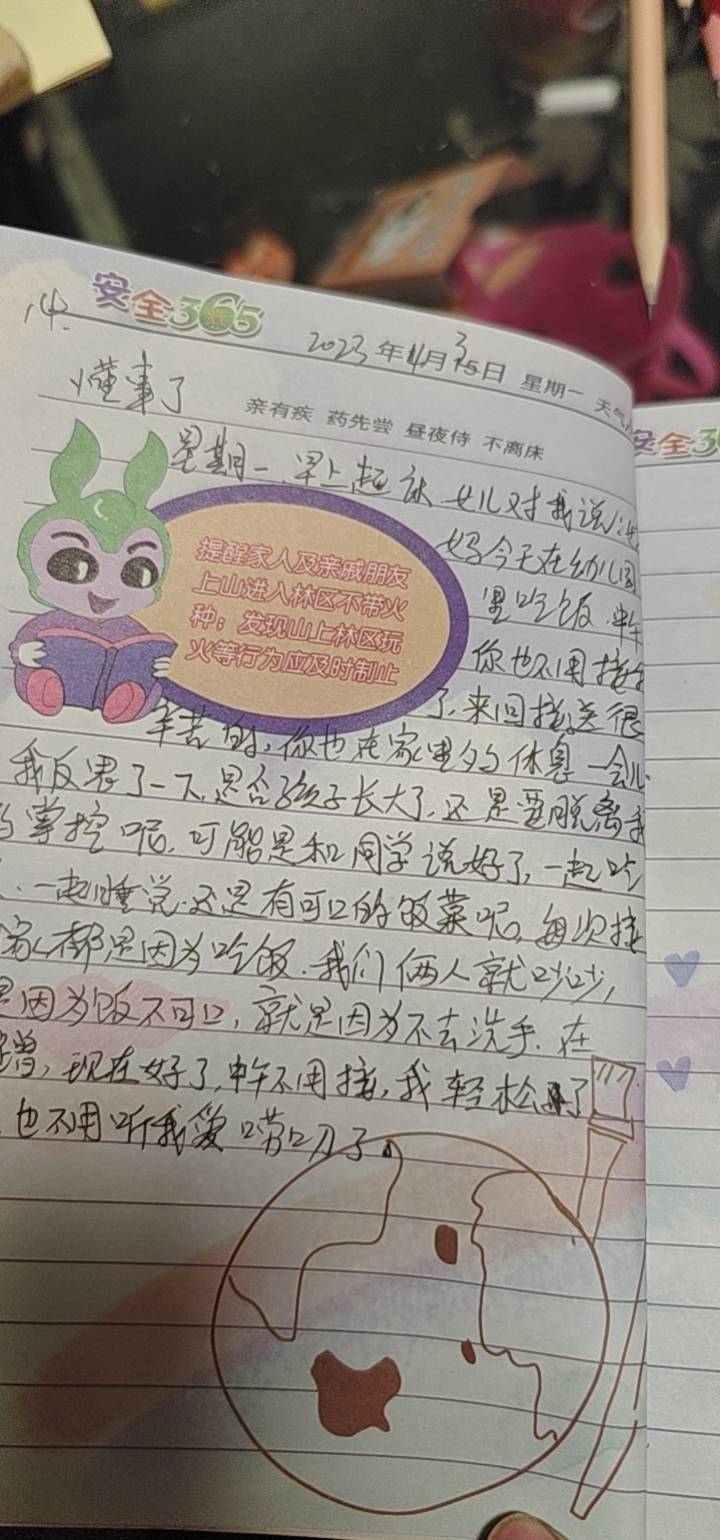 14.
安全365
2023年4月3日 星期一 天气
懂事了
亲有疾 药先尝 昼夜侍 不离床
星期一早上起床 女儿对我说:妈
妈今天在幼儿园
里吃饭.中午
你也不用接我
了,来回接送很
辛苦的,你也在家里多多休息一会儿.
我反思了一下,是否孩子长大了,还是要脱离我
的掌控呢,可能是和同学说好了,一起吃
一起睡觉.还是有可口的饭菜呢,每次接
家都是因为吃饭.我们俩人就吵吵,
是因为饭不可口,就是因为不去洗手.在
现在好了,中午不用接,我轻松了
也不用听我爱唠叨了.
提醒家人及亲戚朋友
上山进入林区不带火
种;发现山上林区玩
火等行为应及时制止
安全3